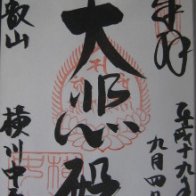 奉拝
平成十九年
九月四日
大悲殿
叡山
横川中